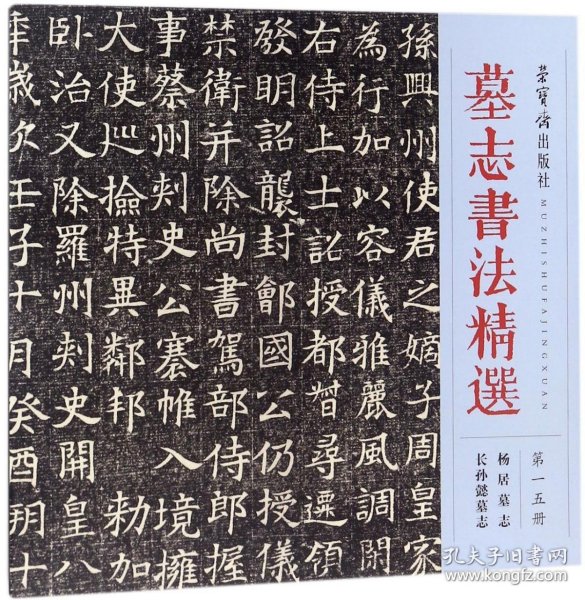 孫興州使君之嫡子周皇家
為行加以容儀雅麗風調閑
右侍上士詔授都督尋遷領
發明詔襲封鄫國公仍授儀
禁衛并除尚書駕部侍郎握
事蔡州刾史公褰帷入境擁
大使巡撿特異鄰邦勑加
卧治又除羅州刾史開皇八
年歲次壬子十月癸酉朔十
榮寶齋出版社
墓志書法精選
MUZHISHUFAJINGXUAN
第一五册
杨居墓志
长孙懿墓志
孔夫子旧书网
www.kongfz.com